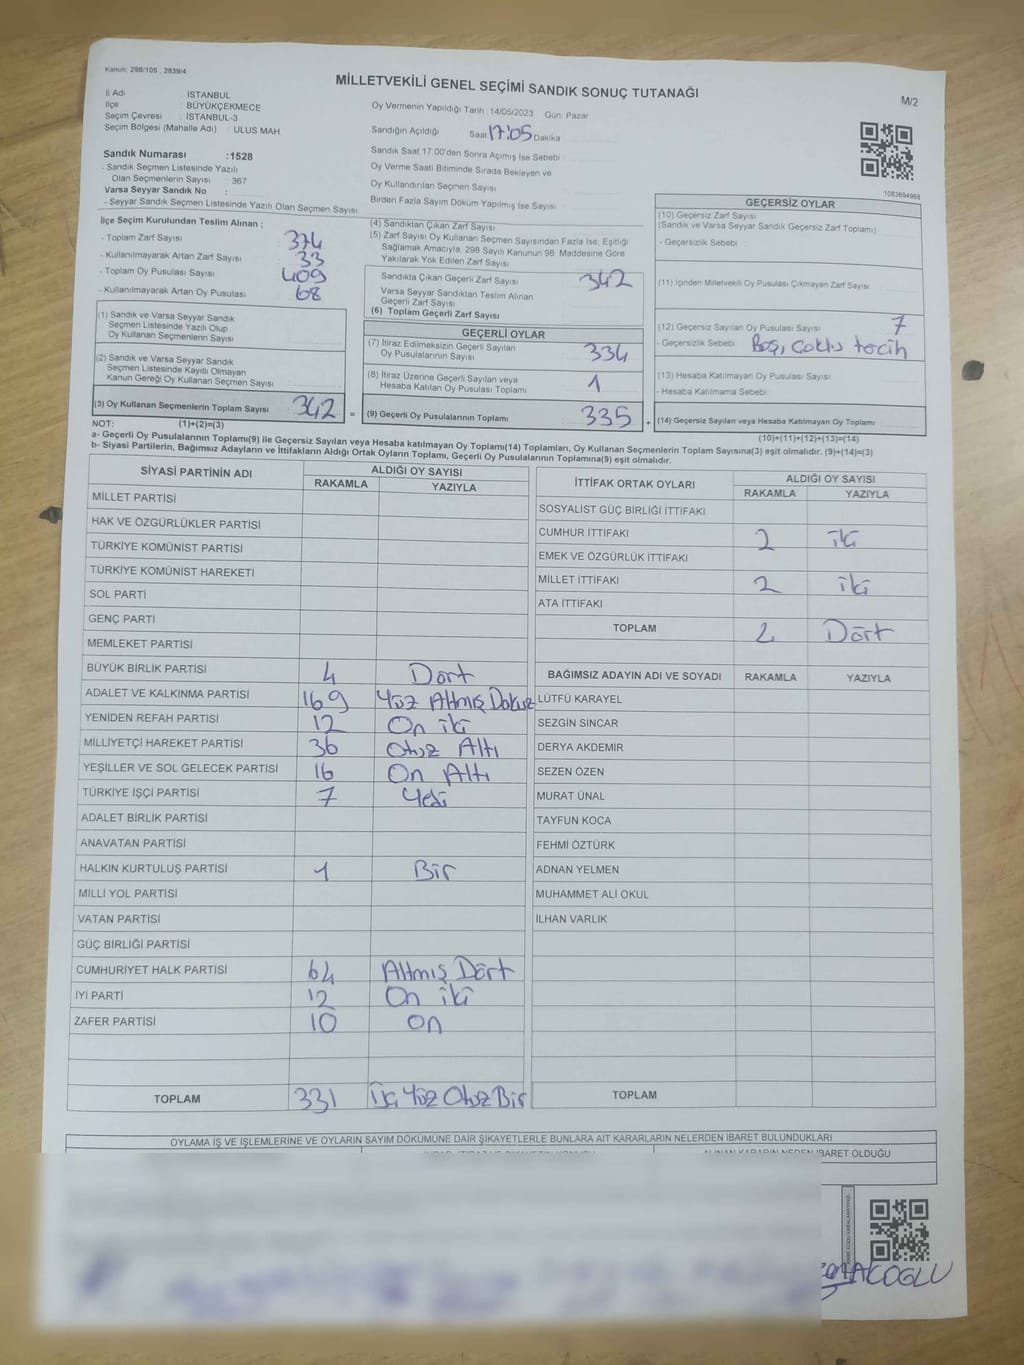 Kanun: 298/105 , 2839/4
MİLLETVEKİLİ GENEL SEÇİMİ SANDIK SONUÇ TUTANAĞI
M/2
İl Adı İSTANBUL
İlçe : BÜYÜKÇEKMECE
Seçim Çevresi : İSTANBUL-3
Seçim Bölgesi (Mahalle Adı) : ULUS MAH.
Oy Vermenin Yapıldığı Tarih :14/05/2023 Gün: Pazar
Sandığın Açıldığı Saat 17:05 Dakika
Sandık Saat 17:00'den Sonra Açımış İse Sebebi
Oy Verme Saati Bitiminde Sırada Bekleyen ve
Oy Kullandırılan Seçmen Sayısı
Birden Fazla Sayım Döküm Yapılmış İse Sayısı
Sandık Numarası :1528
- Sandık Seçmen Listesinde Yazılı
Olan Seçmenlerin Sayısı : 367
Varsa Seyyar Sandık No :
- Seyyar Sandık Seçmen Listesinde Yazılı Olan Seçmen Sayısı
1083694968
İlçe Seçim Kurulundan Teslim Alınan ;
- Toplam Zarf Sayısı 374
- Kullanılmayarak Artan Zarf Sayısı 33
- Toplam Oy Pusulası Sayısı 409
- Kullanılmayarak Artan Oy Pusulası 68
(1) Sandık ve Varsa Seyyar Sandık
Seçmen Listesinde Yazılı Olup
Oy Kullanan Seçmenlerin Sayısı
(2) Sandık ve Varsa Seyyar Sandık
Seçmen Listesinde Kayıtlı Olmayan
Kanun Gereği Oy Kullanan Seçmen Sayısı
(3) Oy Kullanan Seçmenlerin Toplam Sayısı 342 =
(1)+(2)=(3)
(4) Sandıktan Çıkan Zarf Sayısı
(5) Zarf Sayısı Oy Kullanan Seçmen Sayısından Fazla İse, Eşitliği
Sağlamak Amacıyla, 298 Sayılı Kanunun 98. Maddesine Göre
Yakılarak Yok Edilen Zarf Sayısı
Sandıkta Çıkan Geçerli Zarf Sayısı 342
Varsa Seyyar Sandıktan Teslim Alınan
Geçerli Zarf Sayısı
(6) Toplam Geçerli Zarf Sayısı
GEÇERLİ OYLAR
(7) İtiraz Edilmeksizin Geçerli Sayılan
Oy Pusulalarının Sayısı 334
(8) İtiraz Üzerine Geçerli Sayılan veya
Hesaba Katılan Oy Pusulası Toplamı 1
(9) Geçerli Oy Pusulalarının Toplamı 335 +
GEÇERSİZ OYLAR
(10) Geçersiz Zarf Sayısı
(Sandık ve Varsa Seyyar Sandık Geçersiz Zarf Toplamı)
- Geçersizlik Sebebi
(11) İçinden Milletvekili Oy Pusulası Çıkmayan Zarf Sayısı
(12) Geçersiz Sayılan Oy Pusulası Sayısı 7
- Geçersizlik Sebebi Boş, çoklu tercih
(13) Hesaba Katılmayan Oy Pusulası Sayısı
- Hesaba Katılmama Sebebi
(14) Geçersiz Sayılan veya Hesaba Katılmayan Oy Toplamı
(10)+(11)+(12)+(13)=(14)
NOT:
a- Geçerli Oy Pusulalarının Toplamı(9) ile Geçersiz Sayılan veya Hesaba katılmayan Oy Toplamı(14) Toplamları, Oy Kullanan Seçmenlerin Toplam Sayısına(3) eşit olmalıdır. (9)+(14)=(3)
b- Siyasi Partilerin, Bağımsız Adayların ve İttifakların Aldığı Ortak Oyların Toplamı, Geçerli Oy Pusulalarının Toplamına(9) eşit olmalıdır.
SİYASİ PARTİNİN ADI ALDIĞI OY SAYISI
RAKAMLA YAZIYLA
MİLLET PARTİSİ
HAK VE ÖZGÜRLÜKLER PARTİSİ
TÜRKİYE KOMÜNİST PARTİSİ
TÜRKİYE KOMÜNİST HAREKETİ
SOL PARTİ
GENÇ PARTİ
MEMLEKET PARTİSİ
BÜYÜK BİRLİK PARTİSİ 4 Dört
ADALET VE KALKINMA PARTİSİ 169 Yüz Altmış Dokuz
YENİDEN REFAH PARTİSİ 12 On iki
MİLLİYETÇİ HAREKET PARTİSİ 36 Otuz Altı
YEŞİLLER VE SOL GELECEK PARTİSİ 16 On Altı
TÜRKİYE İŞÇİ PARTİSİ 7 Yedi
ADALET BİRLİK PARTİSİ
ANAVATAN PARTİSİ
HALKIN KURTULUŞ PARTİSİ 1 Bir
MİLLİ YOL PARTİSİ
VATAN PARTİSİ
GÜÇ BİRLİĞİ PARTİSİ
CUMHURİYET HALK PARTİSİ 64 Altmış Dört
İYİ PARTİ 12 On iki
ZAFER PARTİSİ 10 on
TOPLAM 331 Üç Yüz Otuz Bir
İTTİFAK ORTAK OYLARI ALDIĞI OY SAYISI
RAKAMLA YAZIYLA
SOSYALİST GÜÇ BİRLİĞİ İTTİFAKI
CUMHUR İTTİFAKI 2 iki
EMEK VE ÖZGÜRLÜK İTTİFAKI
MİLLET İTTİFAKI 2 iki
ATA İTTİFAKI
TOPLAM 4 Dört
BAĞIMSIZ ADAYIN ADI VE SOYADI RAKAMLA YAZIYLA
LÜTFÜ KARAYEL
SEZGİN SİNCAR
DERYA AKDEMİR
SEZEN ÖZEN
MURAT ÜNAL
TAYFUN KOCA
FEHMİ ÖZTÜRK
ADNAN YELMEN
MUHAMMET ALİ OKUL
İLHAN VARLIK
TOPLAM
OYLAMA İŞ VE İŞLEMLERİNE VE OYLARIN SAYIM DÖKÜMÜNE DAİR ŞİKAYETLERLE BUNLARA AİT KARARLARIN NELERDEN İBARET BULUNDUKLARI
ALINAN KARARIN NEDEN İBARET OLDUĞU